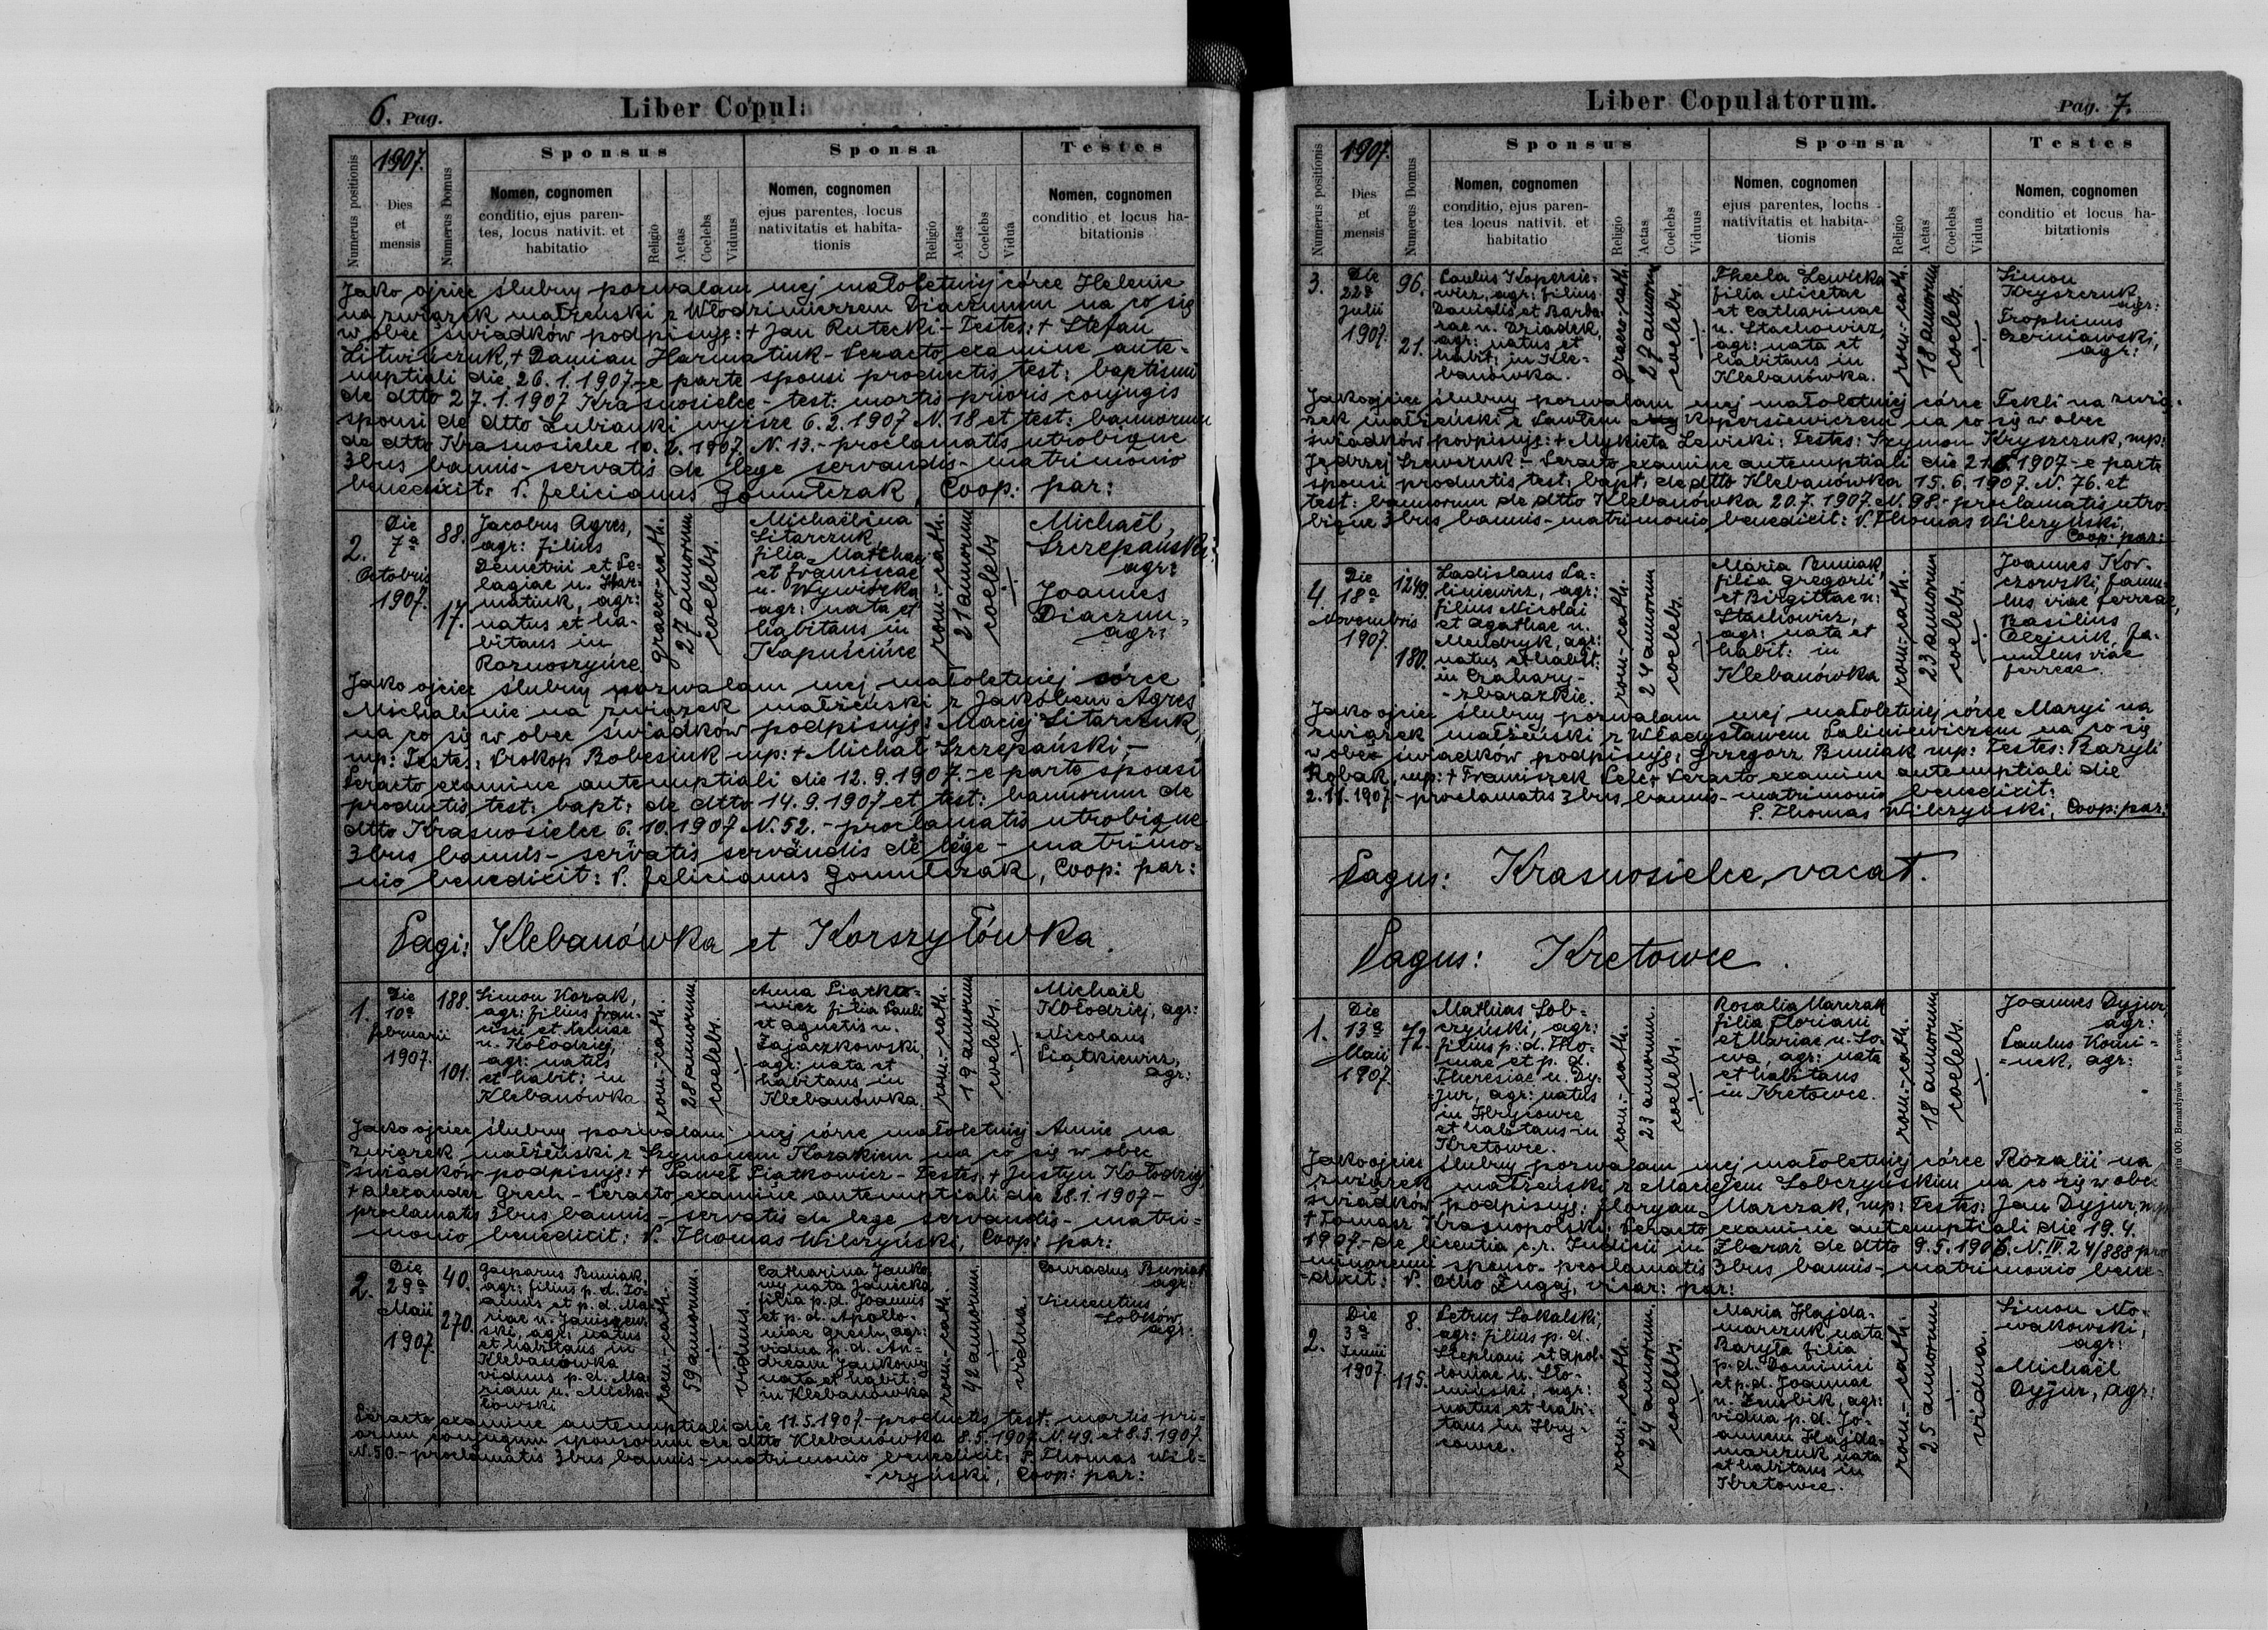 6. Pag.
Liber Copul:
Numerus positionis
1907.
Dies
et
mensis
Numerus Domus
Sponsus
Nomen, cognomen
conditio, ejus paren-
tes, locus nativit. et
habitatio
Religio
Aetas
Coelebs
Viduus
Sponsa
Nomen, cognomen
ejus parentes, locus
nativitatis et habita-
tionis
Religio
Aetas
Coelebs
Vidua
Testes
Nomen, cognomen
conditio et locus ha-
bitationis
Jako ojciec ślubny pozwalam mej małoletniej córce Helenie
na związek małżeński z Włodzimierzem Diaczunem na co się
w obec świadków podpisuję: + Jan Rutecki - Testes: + Stefan
Litwińczuk, + Damian Harmatiuk - Peracto examine ante-
nuptiali die 26. 1. 1907 - e parte sponsi productis test: baptismi
de dtto 27. 1. 1907 Krasnosielce - test: mortis prioris conjugis
sponsi de dtto Lubianki wyższe 6. 2. 1907 N. 18 et test: bannorum
de dtto Krasnosielce 10. 2. 1907. N. 13. - proclamatis utrobique
3bus bannis - servatis de lege servandis - matrimonio
benedixit: P. Felicianus Gomułczak, Coop: par:
2.
Die
7a
Octobris
1907.
88.
17.
Jacobus Agres,
agr: filius
Demetrii et Pe-
lagiae n. Har-
matiuk, agr:
natus et ha-
bitans in
Roznoszyńce
graeco-cath.
27 annorum
coelebs.
Michaëlina
Litarczuk
filia Matthaei
et Franciscae
n. Wywiórka
agr: nata et
habitans in
Kapuścińce
rom:-cath.
21 annorum
coelebs
Michaël
Szczepański
agr:
Joannes
Diaczun,
agr:
Jako ojciec ślubny pozwalam mej małoletniej córce
Michalinie na związek małżeński z Jakóbem Agres
na co się w obec świadków podpisuję: Maciej Litarczuk
mp: Testes: Prokop Bobesiuk mp: + Michał Szczepański -
Peracto examine antenuptiali die 12. 9. 1907. - e parte sponsi
productis test: bapt: de dtto 14. 9. 1907 et test: bannorum de
dtto Krasnosielce 6. 10. 1907 N. 52. - proclamatis utrobique
3bus bannis - servatis servandis de lege - matrimo-
nio benedixit: P. Felicianus Gomułczak, Coop: par:
Pagi: Klebanówka et Korszyłówka.
1.
Die
10a
februarii
1907.
188.
101.
Simon Kozak,
agr: filius Fran-
cisci et Annae
n. Kołodziej,
agr: natus
et habit: in
Klebanówka
rom:-cath.
28 annorum
coelebs.
Anna Piątko-
wicz filia Pauli
et Agnetis n.
Zajączkowski,
agr: nata et
habitans in
Klebanówka.
rom:-cath.
19 annorum
coelebs.
Michaël
Kołodziej, agr:
Nicolaus
Piątkiewicz,
agr:
Jako ojciec ślubny pozwalam mej córce małoletniej Annie na
związek małżeński z Szymonem Kozakiem na co się w obec
świadków podpisuję: + Paweł Piątkowicz - Testes: + Justyn Kołodziej
+ Alexander Grech - Peracto examine antenuptiali die 28. 1. 1907 -
proclamatis 3bus bannis - servatis de lege servandis - matri-
monio benedixit: P. Thomas Wilczyński, Coop: par:
2.
Die
29a
Maii
1907.
40.
270.
Gasparus Buniak,
agr: filius p. d. Jo-
annis et p. d. Ma-
riae n. Janiszew-
ski, agr: natus
et habitans in
Klebanówka
viduus p. d. Ma-
riam n. Micha-
łowski
rom:-cath.
59 annorum.
viduus.
Catharina Janko-
wy nata Janicka
filia p. d. Joannis
et p. d. Apollo-
niae Grech, agr:
vidua p. d. An-
dream Jankowy
nata et habit:
in Klebanówka
rom:-cath.
42 annorum.
vidua.
Conradus Buniak
agr:
Vincentius
Łobków
agr:
Peracto examine antenuptiali die 11. 5. 1907 - productis test: mortis pri-
orum conjugum sponsorum de dtto Klebanówka 8. 5. 1907 N. 49. et 8. 5. 1907.
N. 50. - proclamatis 3bus bannis - matrimonio benedixit: P. Thomas Wil-
czyński, Coop: par:
Liber Copulatorum.
Pag. 7.
Numerus positionis
1907.
Dies
et
mensis
Numerus Domus
Sponsus
Nomen, cognomen
conditio, ejus paren-
tes locus nativit. et
habitatio
Religio
Aetas
Coelebs
Viduus
Sponsa
Nomen, cognomen
ejus parentes, locus
nativitatis et habita-
tionis
Religio
Aetas
Coelebs
Vidua
Testes
Nomen, cognomen
conditio et locus ha-
bitationis
3.
Die
22a
Julii
1907.
96.
21.
Paulus Kopersie-
wicz, agr: filius
Danielis et Barba-
rae n. Dziadyk,
agr: natus et
habit: in Kle-
banówka.
graeco-cath.
27 annorum
coelebs.
Thecla Lewicka
filia Nicetae
et Catharinae
n. Stachowicz,
agr: nata et
habitans in
Klebanówka.
rom:-cath.
18 annorum
coelebs.
Simon
Kryszczuk
agr:
Trophimus
Czerniawski,
agr:
Jako ojciec ślubny pozwalam mej małoletniej córce Tekli na zwią-
zek małżeński z Pawłem Kopersiewiczem na co się w obec
świadków podpisuję: + Mykieta Lewicki: Testes: Szymon Kryszczuk, mp:
Jędrzej Szewczuk - Peracto examine antenuptiali die 21. 6. 1907 - e parte
sponsi productis test: bapt: de dtto Klebanówka 15. 6. 1907. N. 76. et
test: bannorum de dtto Klebanówka 20. 7. 1907. N. 98. - proclamatis utro-
bique 3bus bannis - matrimonio benedixit: P. Thomas Wilczyński,
Coop: par:
4.
Die
18a
Novembris
1907.
1249.
180.
Ladislaus Pa-
liniewicz, agr:
filius Nicolai
et Agathae n.
Mendryk, agr:
natus et habit:
in Czahary-
-zbarazkie.
rom:-cath.
24 annorum
coelebs.
Maria Buniak
filia Gregorii
et Birgittae n:
Stachowicz,
agr: nata et
habit: in
Klebanówka
rom:-cath.
23 annorum
coelebs.
Joannes Kor-
czowski, famu-
lus viae ferreae,
Basilius
Olejnik, fa-
mulus viae
ferreae.
Jako ojciec ślubny pozwalam mej małoletniej córce Maryi na
związek małżeński z Władysławem Paliniewiczem na co się
w obec świadków podpisuję: Grzegorz Buniak mp: Testes: Bazyli
Robak, mp: + Franciszek Pelc + Peracto examine antenuptiali die
2. 11. 1907 - proclamatis 3bus bannis - matrimonio benedixit:
P. Thomas Wilczyński, Coop: par:
Pagus: Krasnosielce, vacat.
Pagus: Kretowce.
1.
Die
13a
Maii
1907.
72.
Mathias Sob-
czyński, agr:
filius p. d. Tho-
mae et p. d.
Theresiae n. Dy-
jur, agr: natus
in Hrycowce
et habitans in
Kretowce.
rom:-cath.
23 annorum.
coelebs.
Rosalia Marczak
filia Floriani
et Mariae n. So-
wa, agr: nata
et habitans
in Kretowce.
rom:-cath.
18 annorum
coelebs.
Joannes Dyjur,
agr:
Paulus Komi-
nek, agr:
Jako ojciec ślubny pozwalam mej małoletniej córce Rozalii na
związek małżeński z Maciejem Sobczyńskim na co się w obec
świadków podpisuję: Floryan Marczak, mp: Testes: Jan Dyjur, mp
+ Tomasz Krasnopolski: Peracto examine antenuptiali die 19. 4.
1907. - de licentia c. r. Judicii in Zbaraż de dtto 9. 5. 1906. N. IV. 24/888 pro
minorenni sponso - proclamatis 3bus bannis - matrimonio bene-
dixit: P. Otho Zugaj, vicar: par:
2.
Die
3a
Junii
1907.
8.
115.
Petrus Sokalski,
agr: filius p. d.
Stephani et Apol-
loniae n. Sło-
miński, agr:
natus et habi-
tans in Hry-
cowce.
rom:-cath.
24 annorum.
coelebs.
Maria Hajda-
marczuk nata
Baryła filia
p. d. Dominici
et p. d. Joannae
n. Zembik, agr:
vidua p. d. Jo-
annem Hajda-
marczuk nata
et habitans in
Kretowce.
rom:-cath.
25 annorum
vidua.
Simon No-
wakowski,
agr:
Michaël
Dyjur, agr:
OO. Bernardynów we Lwowie.